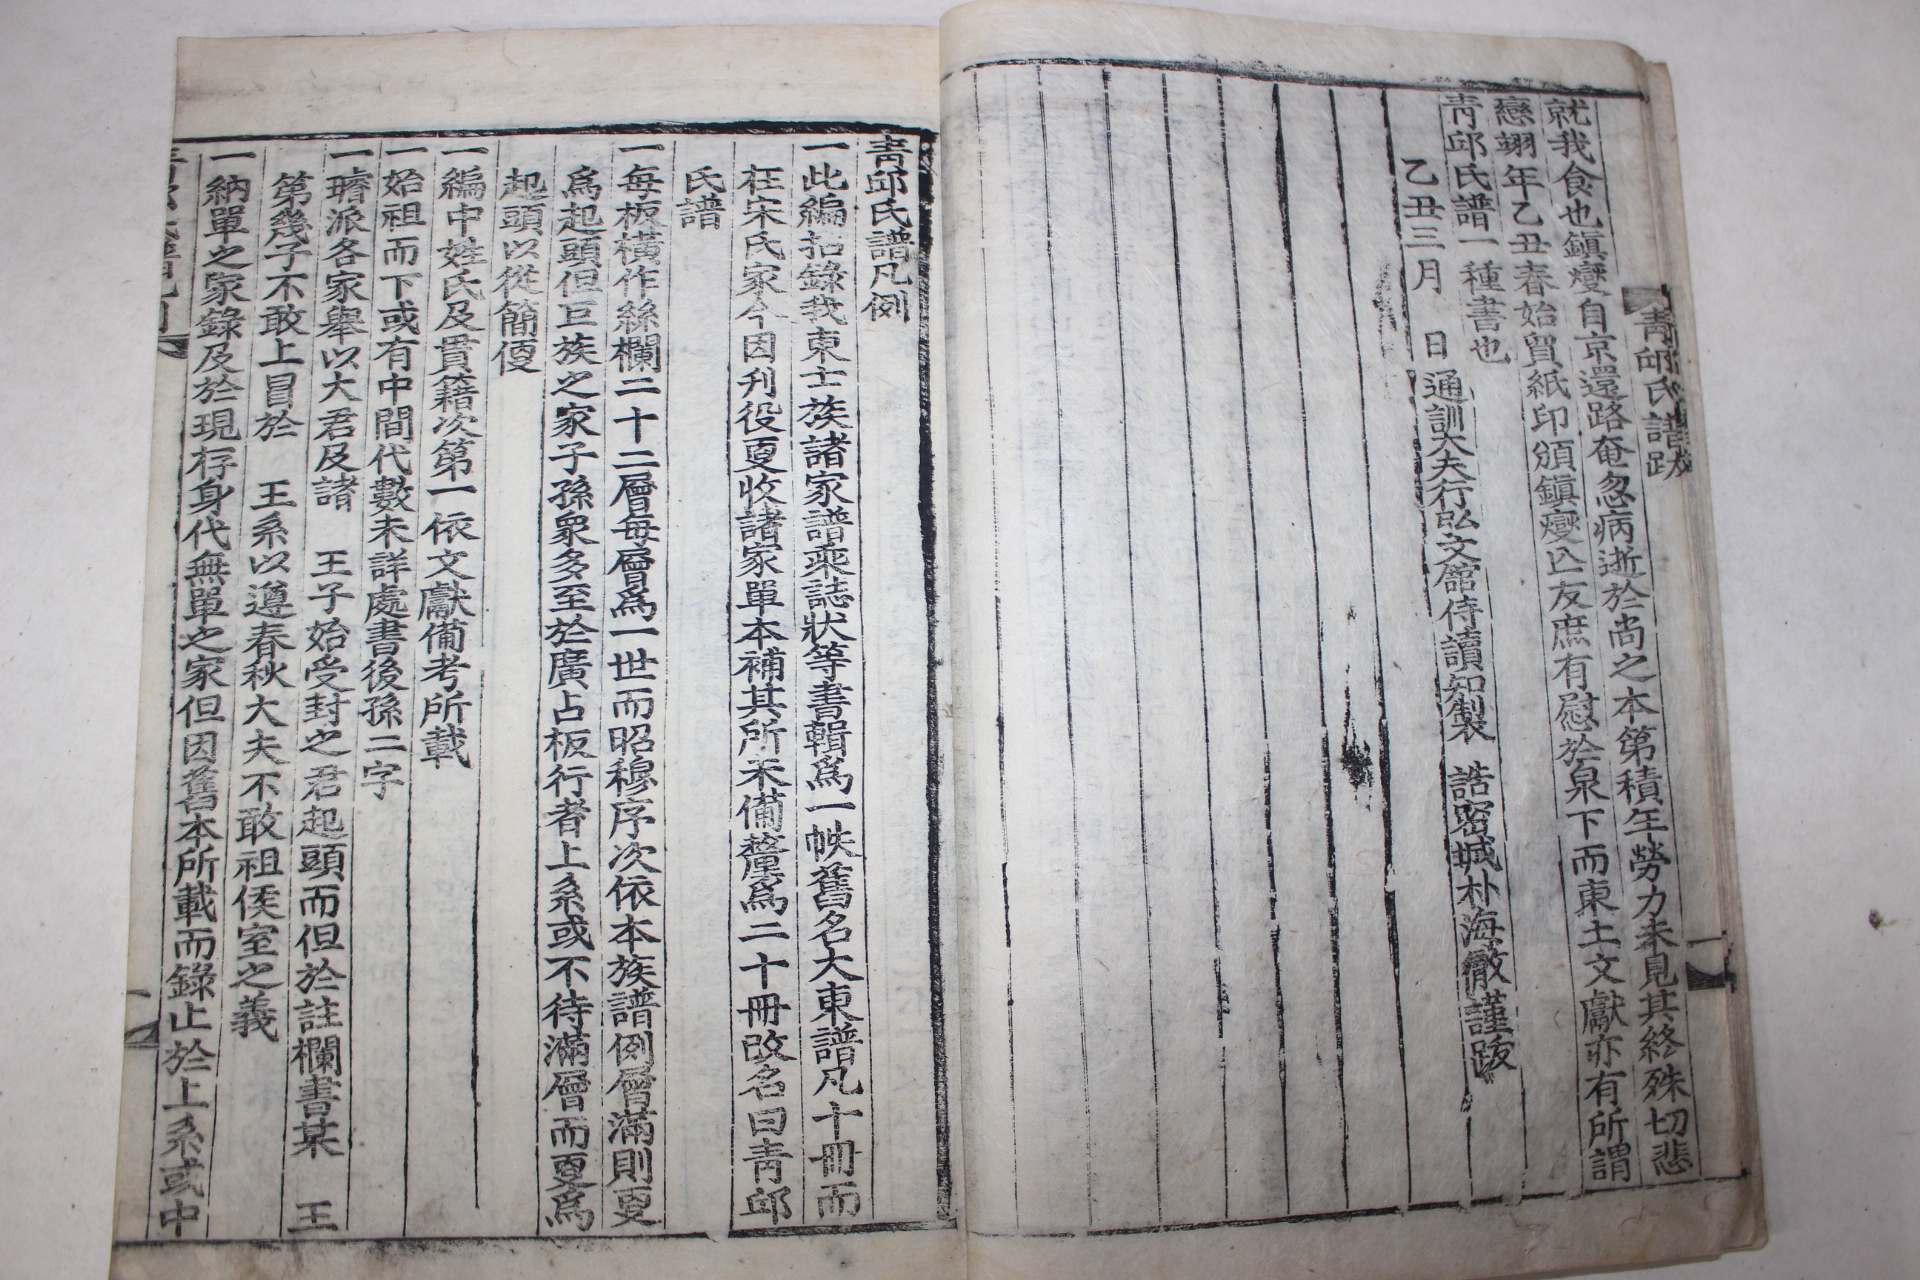 就我食也鎭燮自京還路奄忽病逝於尚之本第積年勞力未見其終殊切悲
戀翊年乙丑春始貿紙印頒鎭燮亡友庶有慰於泉下而東土文獻亦有所謂
靑邱氏譜一種書也
乙丑三月 日 通訓大夫行弘文舘侍讀知製 誥密城朴海徹謹跋
靑邱氏譜跋
一
靑邱氏譜凡例
一此編抄錄我東士族諸家譜乘誌狀等書輯爲一帙舊名大東譜凡十冊而
在宋氏家今因刋役更收諸家單本補其所不備釐爲二十冊改名曰靑邱
氏譜
一每板橫作絲欄二十二層每層爲一世而昭穆序次依本族譜例層滿則更
爲起頭但巨族之家子孫衆多至於廣占板行者上系或不待滿層而更爲
起頭以從簡便
一編中姓氏及貫籍次第一依文獻備考所載
一始祖而下或有中間代數未詳處書後孫二字
一璿派各家擧以大君及諸 王子始受封之君起頭而但於註欄書某 王
第幾子不敢上冒於 王系以遵春秋大夫不敢祖侯室之義
一納單之家錄及於現存身代無單之家但因舊本所載而錄止於上系或中
一